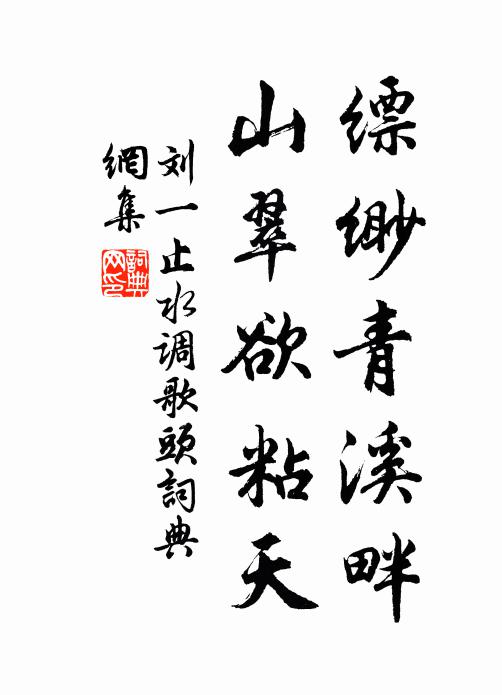 缥缈青溪畔
山翠欲粘天
刘一止水调歌頭詞典
網集
詞典
网印